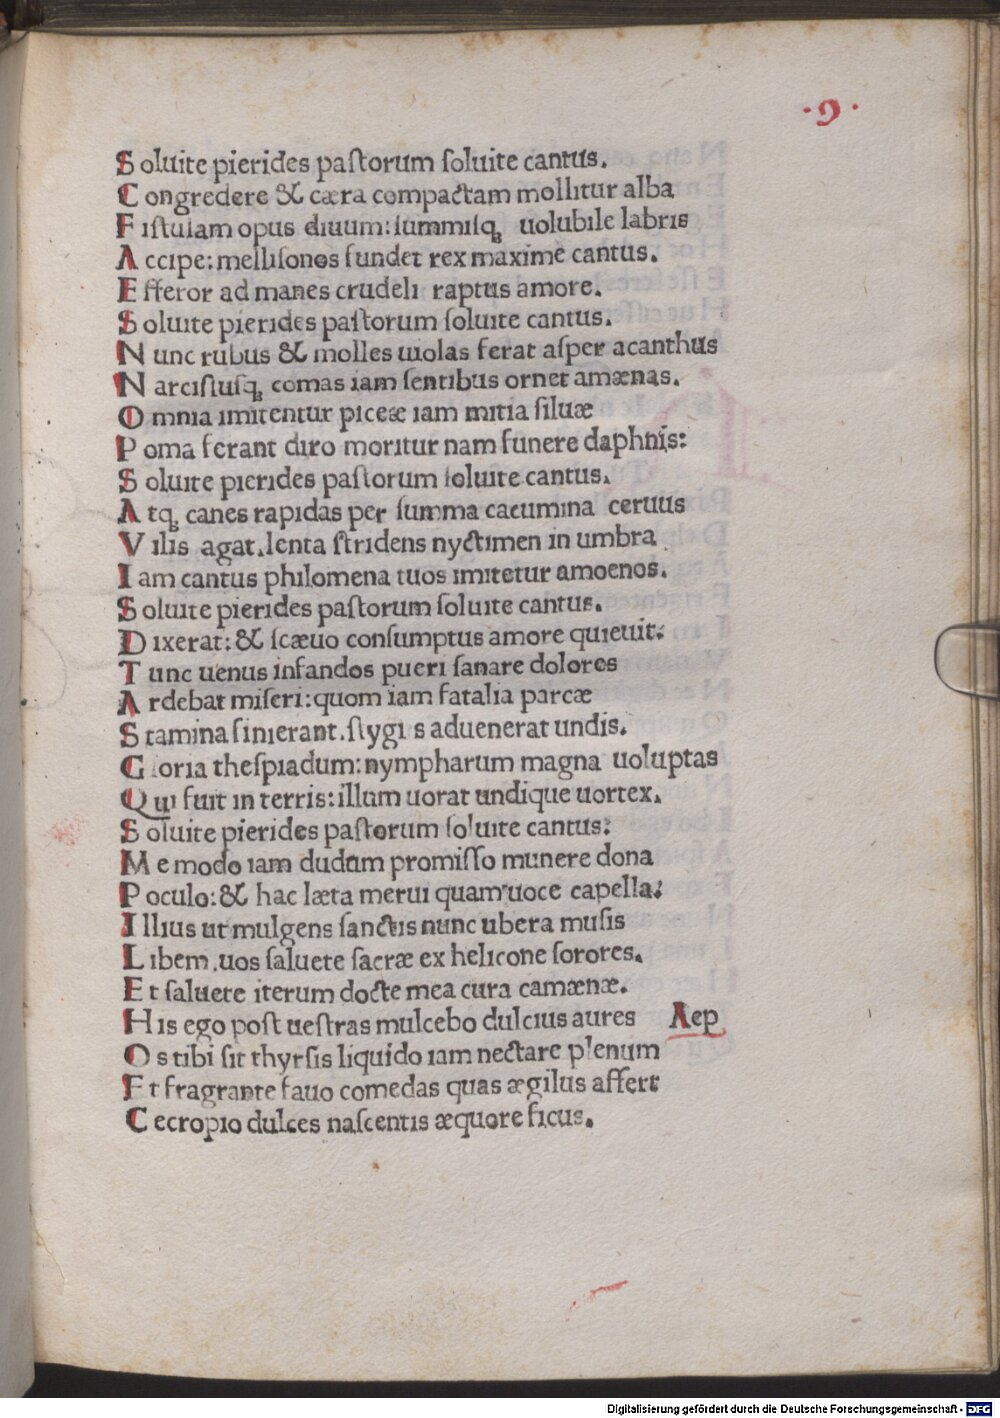 ·9·
S oluite pierides paſtorum ſoluite cantus.
C ongredere & cæra compactam mollitur alba
F iſtulam opus diuum: ſummiſqꝫ uolubile labris
A ccipe: melliſonos fundet rex maxime cantus.
E fferor ad manes crudeli raptus amore.
S oluite pierides paſtorum ſoluite cantus.
N unc rubus & molles uiolas ferat aſper acanthus
N arciſſuſqꝫ comas iam ſentibus ornet amænas.
O mnia imitentur piceæ iam mitia ſiluæ
P oma ferant diro moritur nam funere daphnis:
S oluite pierides paſtorum ſoluite cantus.
A tqꝫ canes rapidas per ſumma cacumina ceruus
V ilis agat. lenta ſtridens nyctimen in umbra
I am cantus philomena tuos imitetur amoenos.
S oluite pierides paſtorum ſoluite cantus.
D ixerat: & ſcæuo conſumptus amore quieuit:
T unc uenus infandos pueri ſanare dolores
A rdebat miſeri: quom iam fatalia parcæ
S tamina finierant. ſtygi s aduenerat undis.
G loria theſpiadum: nympharum magna uoluptas
Qui fuit in terris: illum uorat undique uortex.
S oluite pierides paſtorum ſoluite cantus:
M e modo iam dudum promiſſo munere dona
P oculo: & hac læta merui quam uoce capella:
I llius ut mulgens ſanctis nunc ubera muſis
L ibem. uos ſaluete ſacræ ex helicone ſorores.
E t ſaluete iterum docte mea cura camænæ.
H is ego poſt ueſtras mulcebo dulcius aures Aep
O s tibi ſit thyrſis liquido iam nectare plenum
E t fragrante fauo comedas quas ægilus affert
C ecropio dulces naſcentis æquore ficus.
Digitalisierung gefördert durch die Deutsche Forschungsgemeinschaft - DFG